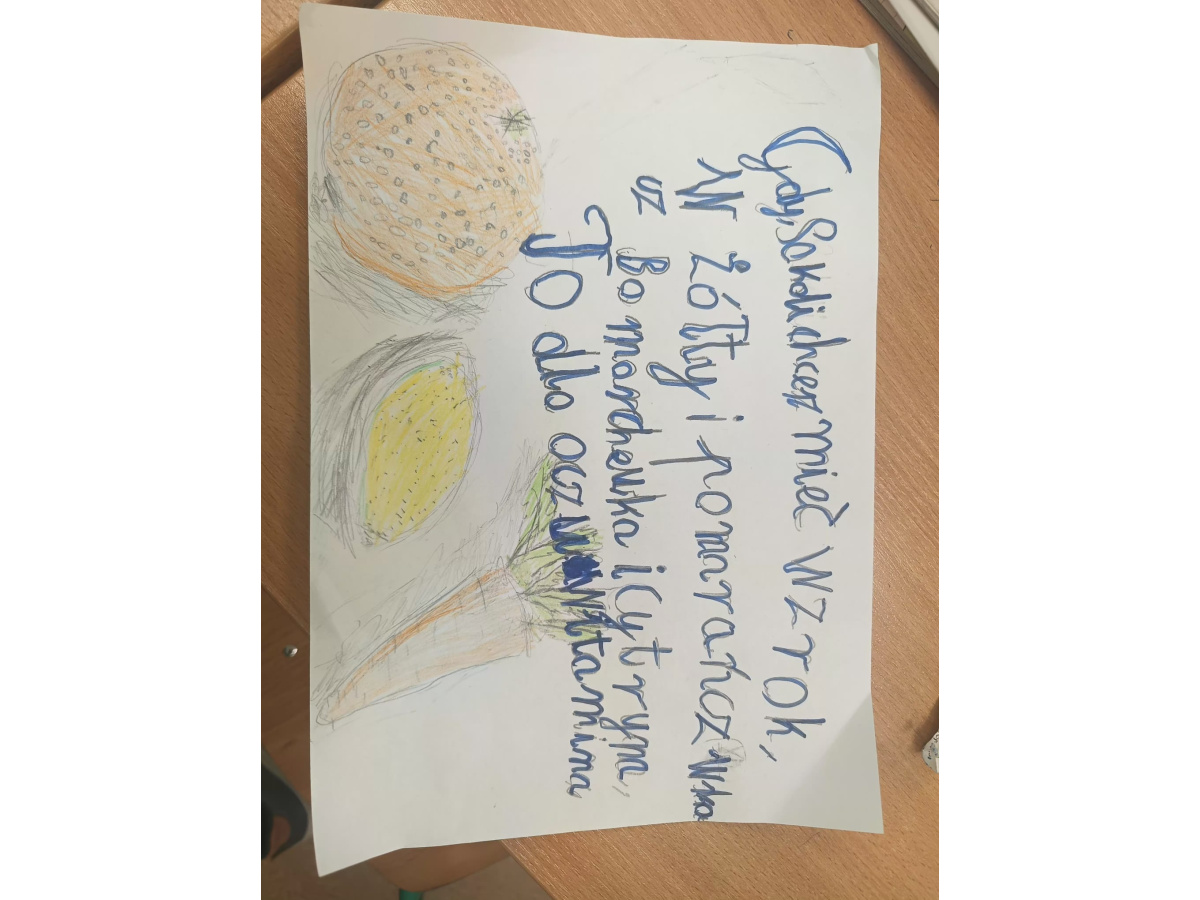 Gdy, Sokoli chcesz mieć wzrok,
W żółty i pomarańcz wko
cz Bo marchewka i cytryna,
To dla oczu witamina,